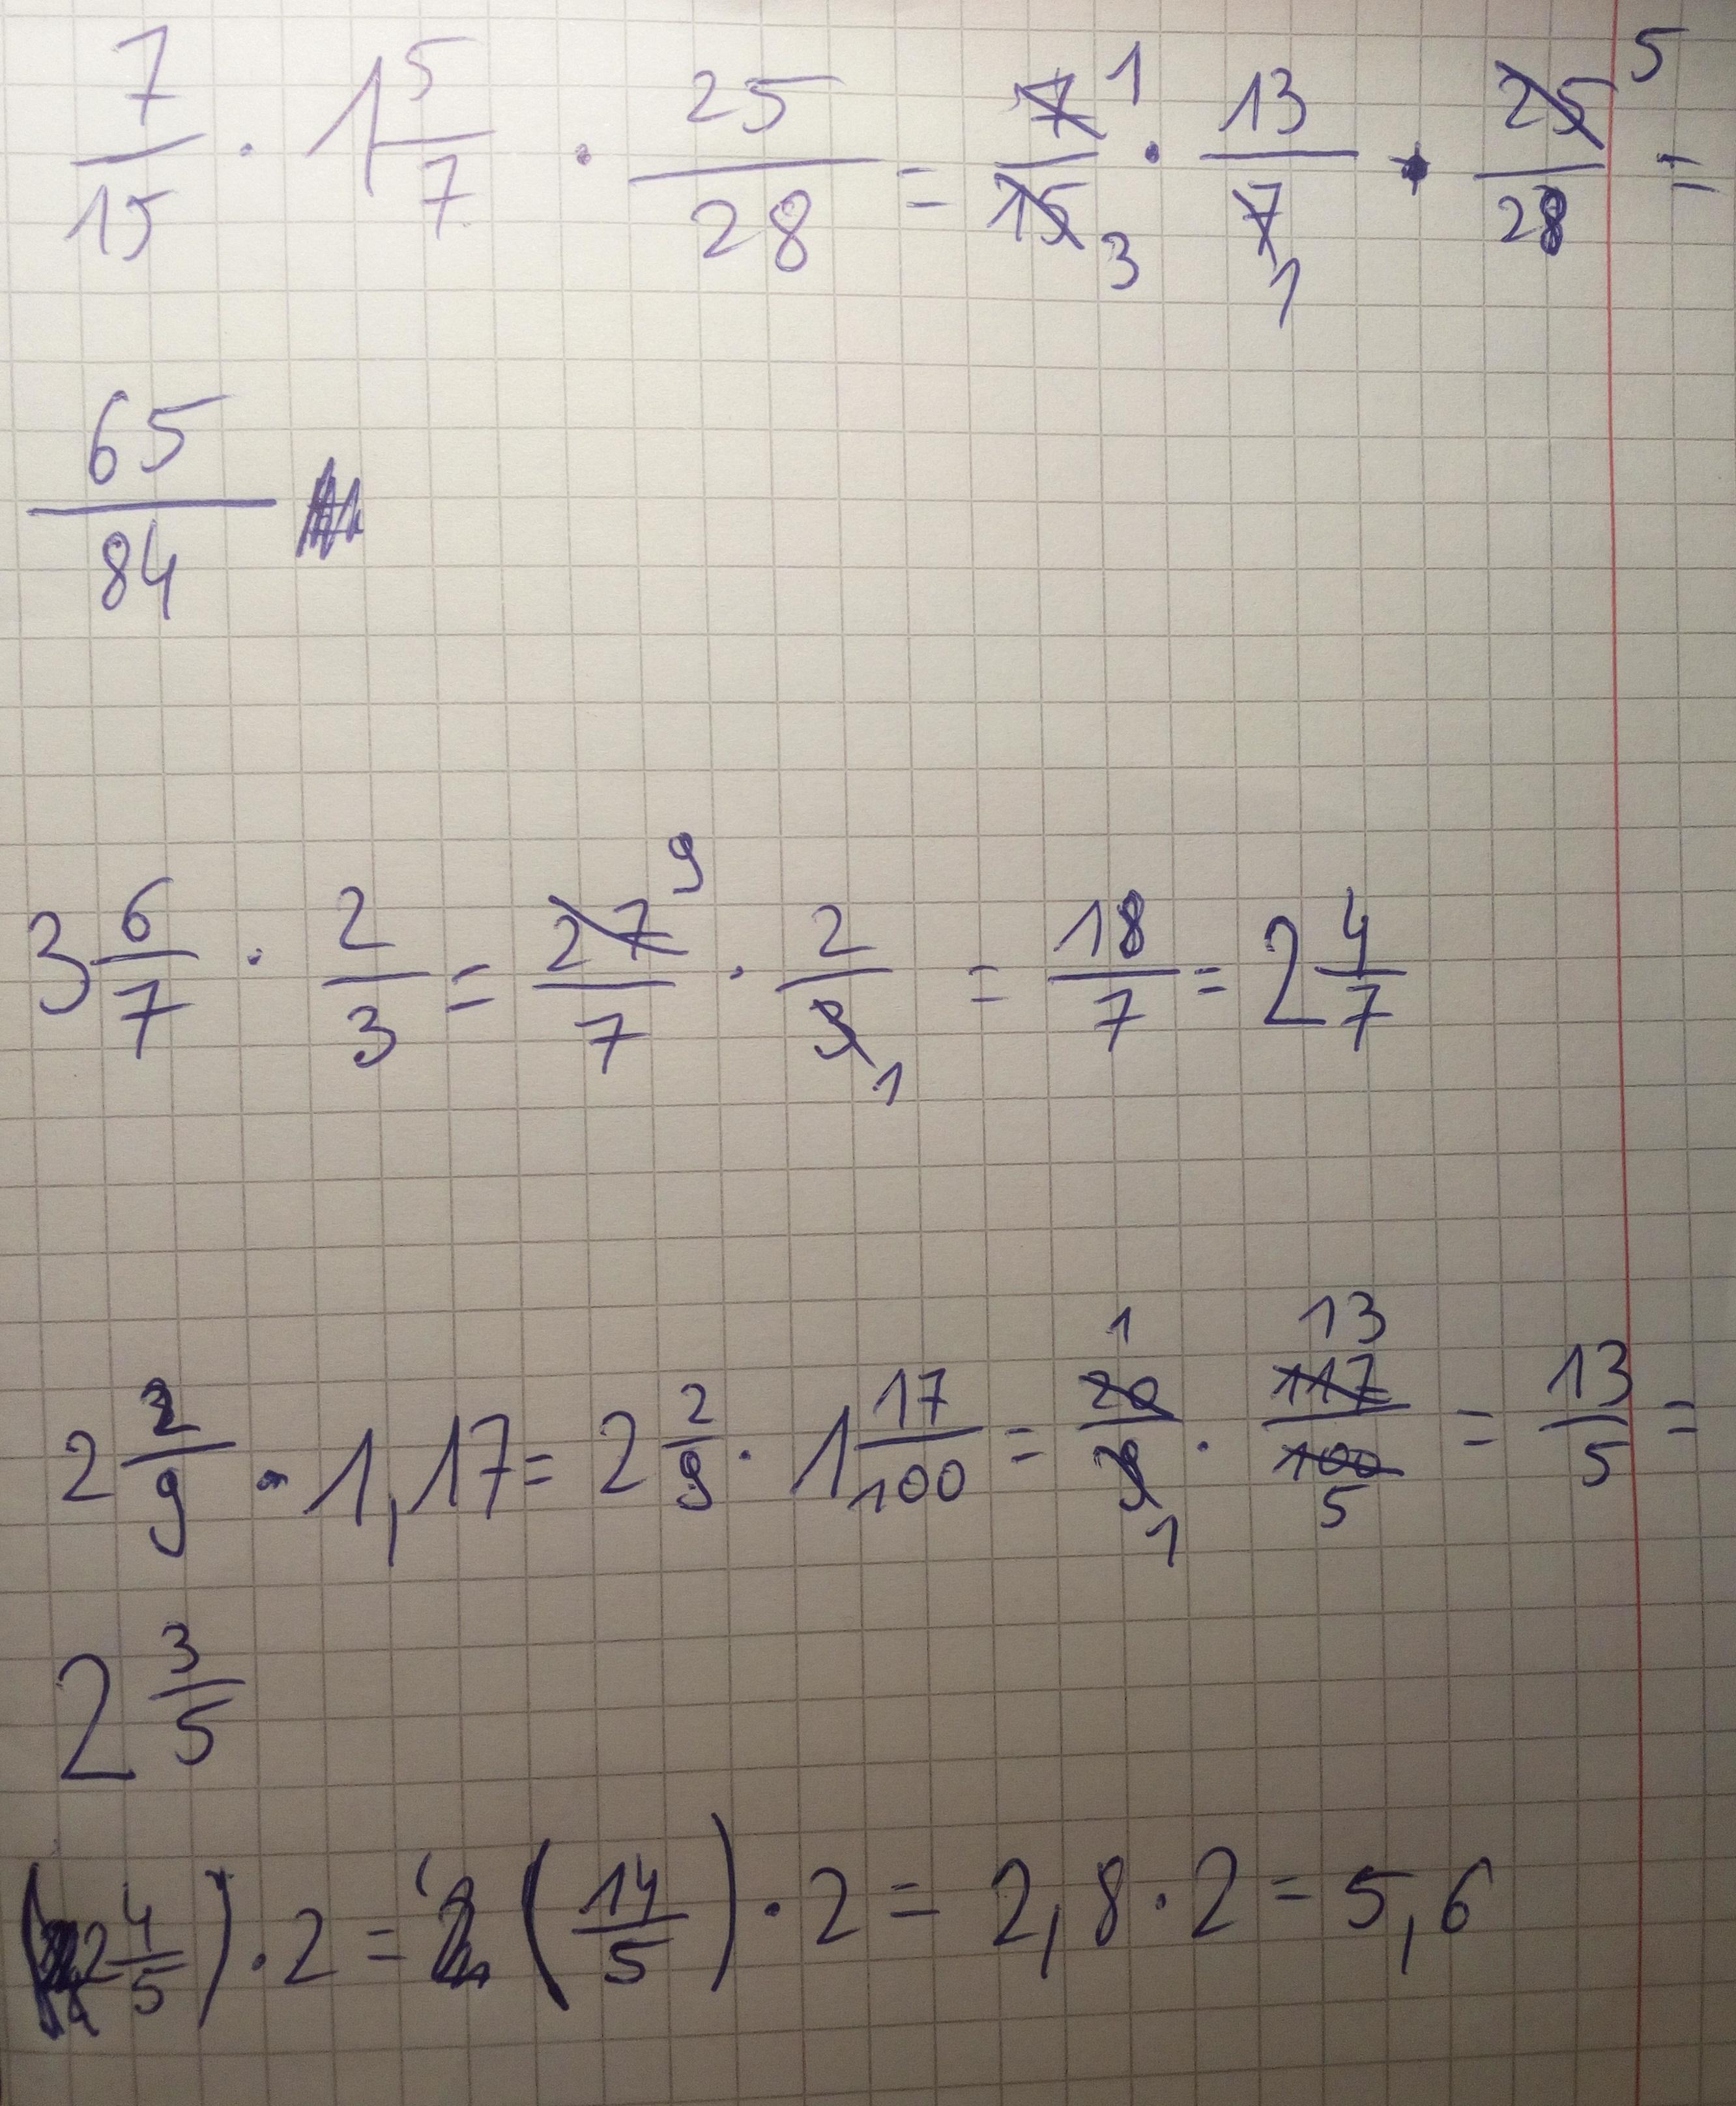 7/15 · 1 5/7 · 25/28 = 7 1/15 3 · 13/7 1 · 25 5/28 =
65/84
3 6/7 · 2/3 = 27 9/7 · 2/3 1 = 18/7 = 2 4/7
2 2/9 · 1,17 = 2 2/9 · 1 17/100 = 1 20/9 1 · 13 117/100 5 = 13/5 =
2 3/5
(2 4/5) · 2 = (14/5) · 2 = 2,8 · 2 = 5,6